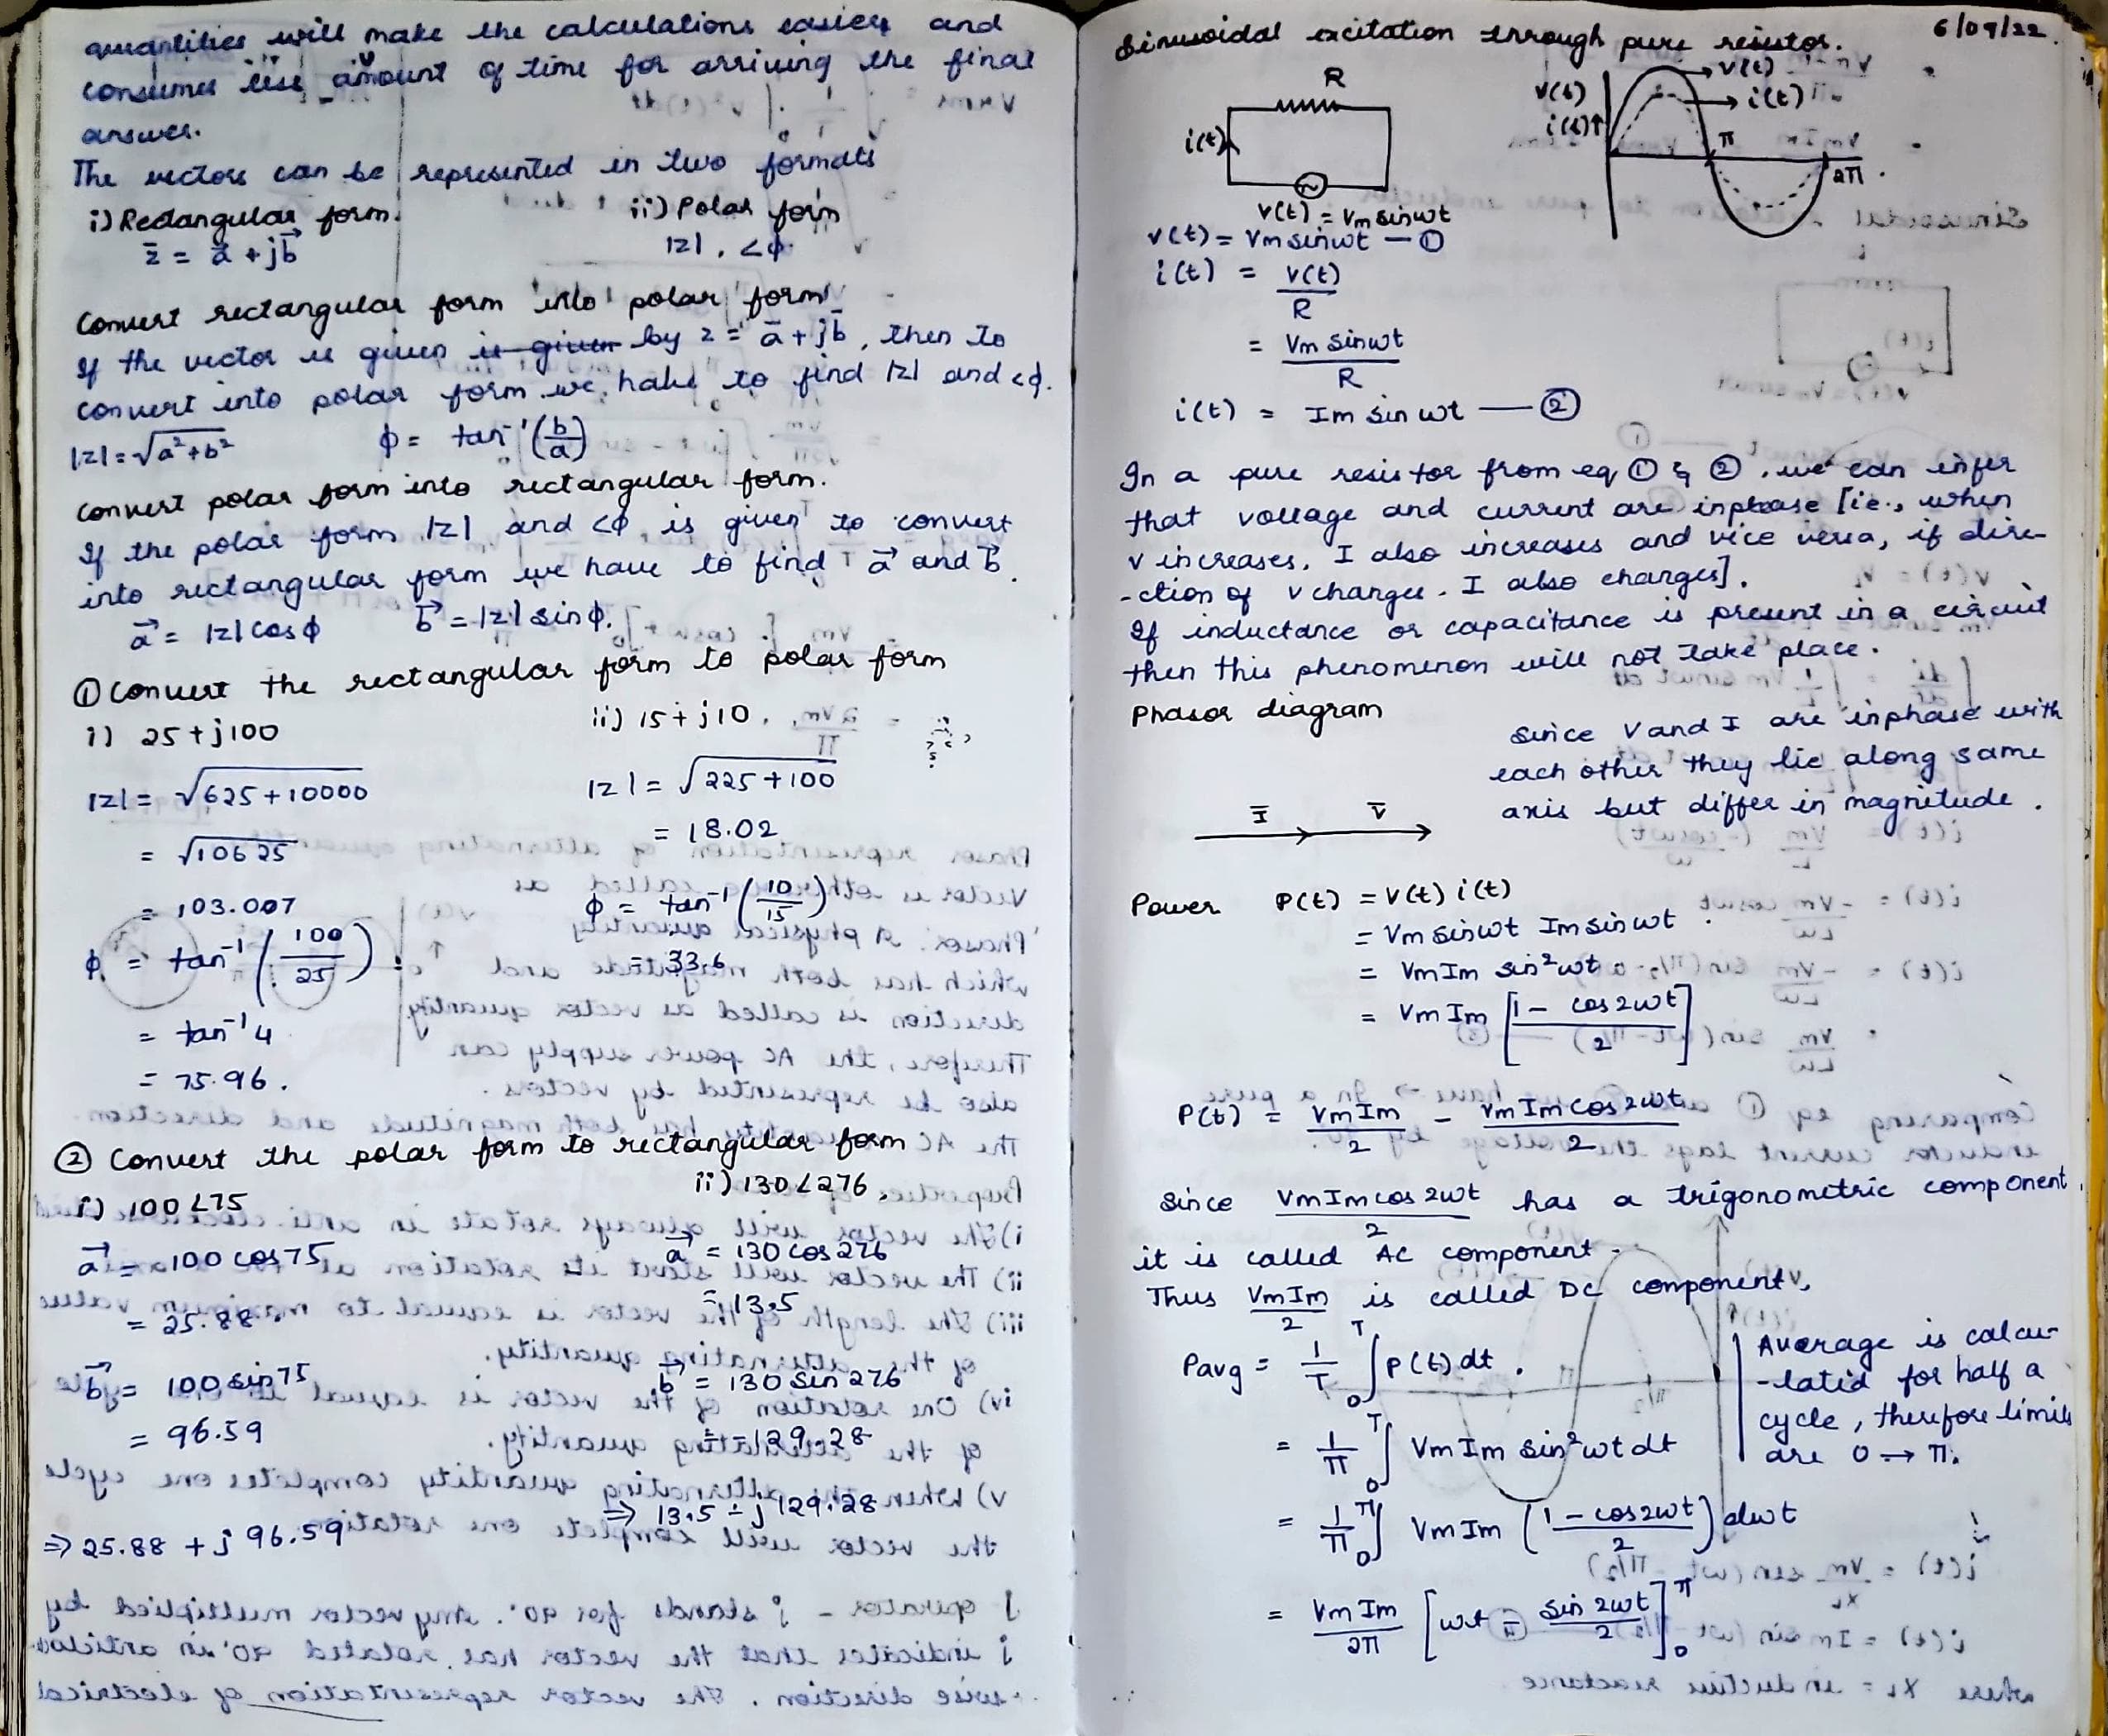 quantities will make the calculations easier and
consumes less amount of time for arriving the final
answer.
The vectors can be represented in two formats
i) Rectangular form.
ii) Polar form
z̄ = a⃗ + jb⃗
|z|, ∠ϕ
Convert rectangular form into polar form
If the vector is given is given by z = ā + jb̄, then to
convert into polar form we have to find |z| and ∠ϕ.
|z| = √a²+b²
ϕ = tan⁻¹(b/a)
Convert polar form into rectangular form.
If the polar form |z| and ∠ϕ is given to convert
into rectangular form we have to find a⃗ and b⃗.
a⃗ = |z| cosϕ
b⃗ = |z| sinϕ.
① Convert the rectangular form to polar form
i) 25+j100
|z| = √625+10000
= √10625
= 103.007
ϕ = tan⁻¹(100/25)
= tan⁻¹4
= 75.96.
ii) 15+j10.
|z| = √225+100
= 18.02
ϕ = tan⁻¹(10/15)
= 33.6
② Convert the polar form to rectangular form
i) 100∠75
a⃗ = 100 cos75
= 25.88.
b⃗ = 100 sin75
= 96.59
⇒ 25.88 + j 96.59
ii) 130∠276.
a⃗ = 130 cos 276
= 13.5
b⃗ = 130 sin 276
= -129.28
⇒ 13.5 - j 129.28
6/09/22.
Sinusoidal excitation through pure resistor.
R
i(t)
v(t) = Vm sinwt
v(t)
i(t)↑
v(t)
i(t)
π
2π
v(t) = Vm sinwt — ①
i(t) = v(t)/R
= Vm sinwt/R
i(t) = Im sin wt — ②
In a pure resistor from eq ① & ②, we can infer
that voltage and current are inphase [ie., when
v increases, I also increases and vice versa, if dire-
-ction of v changes. I also changes].
If inductance or capacitance is present in a circuit
then this phenomenon will not take place.
Phasor diagram
Ī V̄
since V and I are inphase with
each other they lie along same
axis but differ in magnitude.
Power P(t) = v(t) i(t)
= Vm sinwt Im sin wt
= Vm Im sin²wt
= Vm Im [1 - cos2wt / 2]
P(t) = Vm Im/2 - Vm Im cos 2wt/2
Since Vm Im cos 2wt/2 has a trigonometric component.
it is called AC component.
Thus Vm Im/2 is called DC component.
Pavg = 1/T ∫₀ᵀ P(t) dt.
= 1/π ∫₀ᵀ Vm Im sin²wt dt
= 1/π ∫₀^π Vm Im (1 - cos2wt / 2) dwt
= Vm Im/2π [wt - sin 2wt/2]₀^π
Average is calcu-
-lated for half a
cycle, therefore limits
are 0 → π.